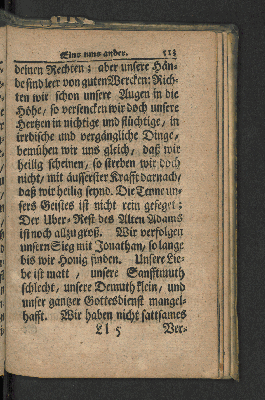 Eins ums ander. 513
deinen Rechten; aber unsere Hän-
de sind leer von guten Wercken: Rich-
ten wir schon unsere Augen in die
Höhe, so versencken wir doch unsere
Hertzen in nichtige und flüchtige, in
irrdische und vergängliche Dinge,
bemühen wir uns gleich, daß wir
heilig scheinen, so streben wir doch
nicht, mit äusserster Krafft darnach,
daß wir heilig seynd. Die Tenne un-
sers Geistes ist nicht rein gefeget;
Der Uber-Rest des Alten Adams
ist noch allzu groß. Wir verfolgen
unsern Sieg mit Jonathan, so lange
bis wir Honig finden. Unsere Lie-
be ist matt, unsere Sanfftmuth
schlecht, unsere Demuth klein, und
unser gantzer Gottesdienst mangel-
hafft. Wir haben nicht sattsames
Ll 5 Ver-